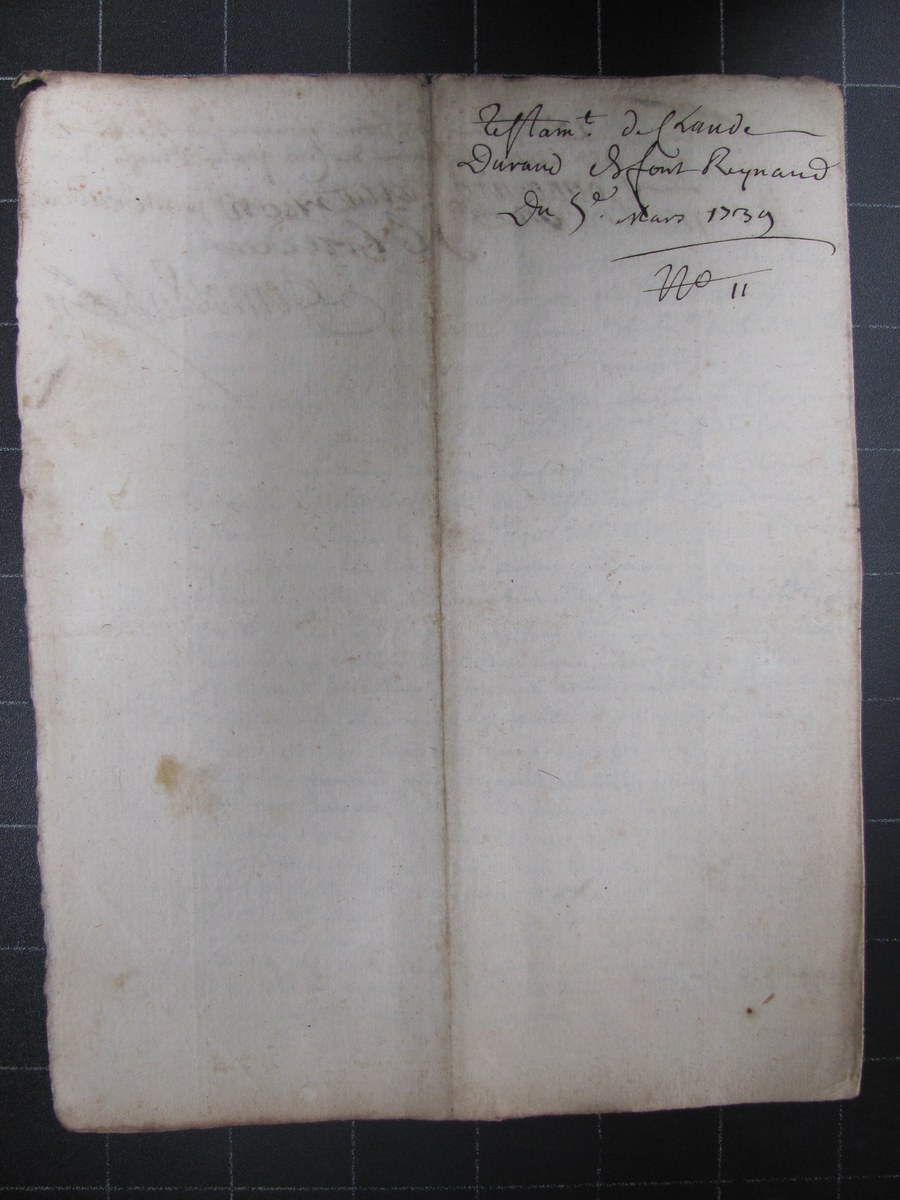 Testamt. de Claude
Durand de font Reynaud
Du 5e. Mars 1739
No 11